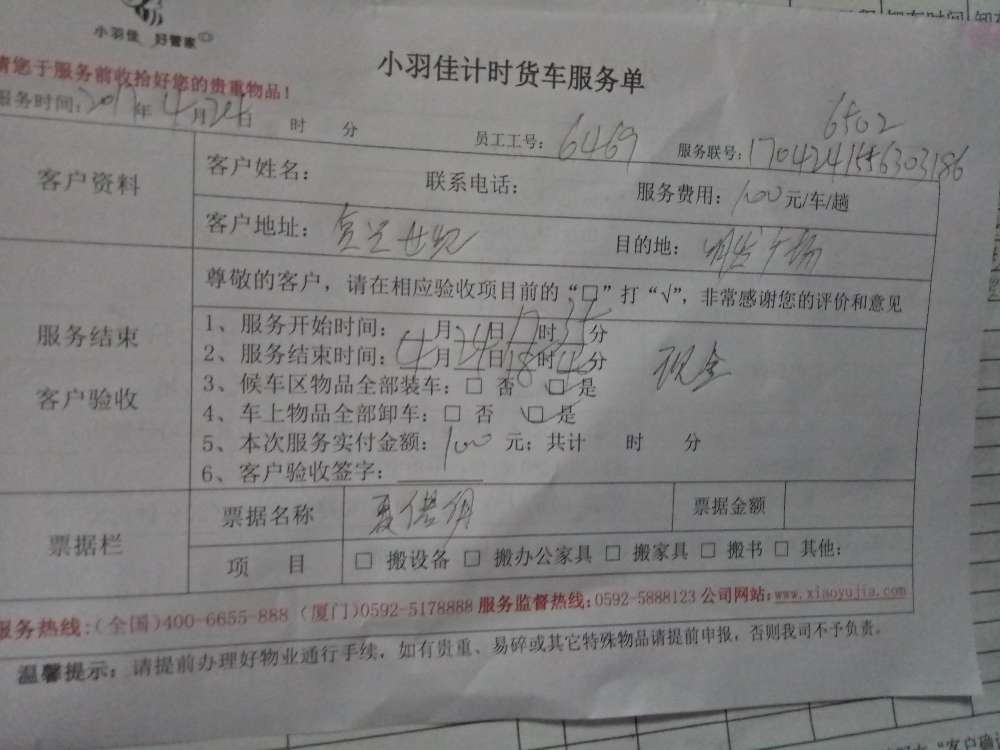 小羽佳 好管家
小羽佳计时货车服务单
请您于服务前收拾好您的贵重物品!
服务时间: 2017年4月24日 时 分
员工工号: 6469
6502
服务联号: 1704241556303186
客户资料
客户姓名: 联系电话: 服务费用: 100元/车/趟
客户地址: 目的地: 明发广场
服务结束
客户验收
尊敬的客户，请在相应验收项目前的“□”打“√”，非常感谢您的评价和意见
1、服务开始时间: 4月24日17时35分
2、服务结束时间: 4月24日18时45分
现金
3、候车区物品全部装车: □ 否 □ 是
4、车上物品全部卸车: □ 否 □ 是
5、本次服务实付金额: 100 元; 共计 时 分
6、客户验收签字:
票据栏
票据名称 票据金额
项 目 □ 搬设备 □ 搬办公家具 □ 搬家具 □ 搬书 □ 其他:
服务热线:(全国)400-6655-888 (厦门)0592-5178888 服务监督热线:0592-5888123 公司网站:www.xiaoyujia.com
温馨提示: 请提前办理好物业通行手续，如有贵重、易碎或其它特殊物品请提前申报，否则我司不予负责。